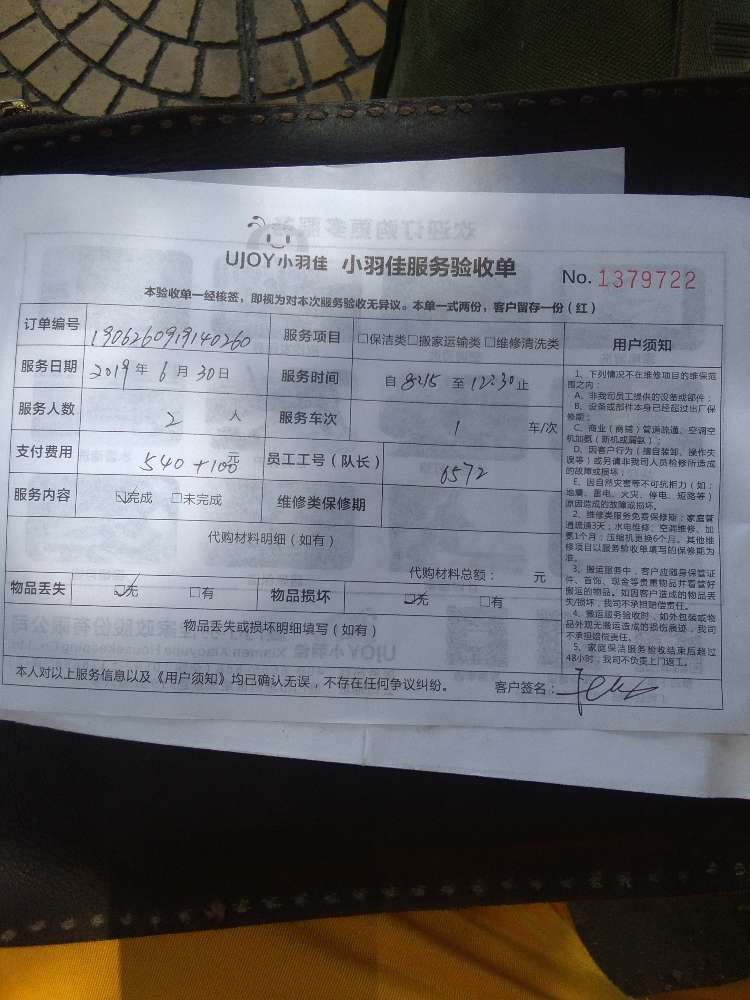 UJOY小羽佳 小羽佳服务验收单 No. 1379722
本验收单一经核签，即视为对本次服务验收无异议。本单一式两份，客户留存一份（红）
订单编号 1906260919140260 服务项目 □保洁类□搬家运输类□维修清洗类
服务日期 2019年6月30日 服务时间 自 8:15 至 12:30止
服务人数 2 人 服务车次 1 车/次
支付费用 540+100元 员工工号（队长） 6572
服务内容 ☑完成 □未完成 维修类保修期
代购材料明细（如有）
代购材料总额： 元
物品丢失 ☑无 □有 物品损坏 ☑无 □有
物品丢失或损坏明细填写（如有）
本人对以上服务信息以及《用户须知》均已确认无误，不存在任何争议纠纷。 客户签名：
用户须知
1、下列情况不在维修项目的维保范
围之内：
A、非我司员工提供的设备或部件；
B、设备或部件本身已经超过出厂保
修期；
C、商业（商铺）管道疏通、空调空
机加氨（新机或漏氨）；
D、因客户行为（擅自装卸、操作失
误等）或另请非我司人员检修所造成
的故障或损坏；
E、因自然灾害等不可抗力（如：
地震、雷电、火灾、停电、短路等）
原因造成的故障或损坏。
2、维修类服务免费保修期：家庭管
道疏通3天；水电维修、空调维修、加
氨1个月；压缩机更换6个月。其他维
修项目以服务验收单填写的保修期为
准。
3、搬运服务中，客户应随身保管证
件、首饰、现金等贵重物品并看管好
搬运的物品。如因客户造成的物品丢
失/损坏，我司不承担赔偿责任。
4、搬运服务验收时，如外包装或物
品外观无搬运造成的损伤痕迹，我司
不承担赔偿责任。
5、家庭保洁服务验收结束后超过
48小时，我司不负责上门返工。